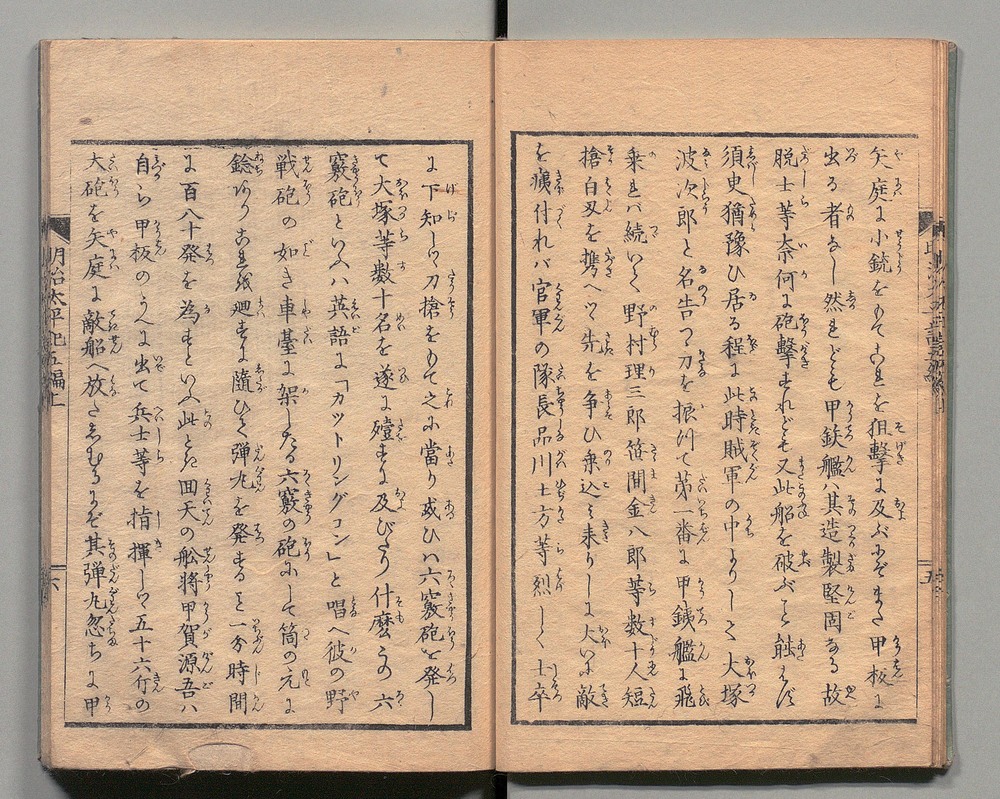 矢庭に小銃をもて之を狙撃に及ぶにぞまた甲板に
出る者なし然れども甲鉄艦ハ其造製堅固なる故
脱士等奈何に砲撃すれども又此船を破ぶる能はず
須臾猶豫ひ居る程に此時賊軍の中よりして大塚
波次郎と名告つゝ刀を振つて第一番に甲鉄艦に飛
乗れバ続いて野村理三郎笹間金八郎等数十人短
槍白刄を携へつゝ先を争ひ乗込み来りし大いに敵
を付れバ官軍の隊長品川土方等烈しく士卒
に下知して刀槍をもて之に當り或ひハ六竅砲を発し
て大塚等数十名を遂に殪すに及びたり什麼この六
竅砲といふハ英語に「カットリングコン」と唱へ彼の野
戦砲の如き車臺に架したる六竅の砲にして筒の元に
ありこれを廻すに隨ひて弾丸を発する一分時間
に百八十発を為すといふ此とき回天の舩将甲賀源吾ハ
自ら甲板のうへに出て兵士等を指揮して五十六斤の
大砲を矢庭に敵船へ放たしむるにぞ其弾丸忽ちに甲
明治太平記五編上
六